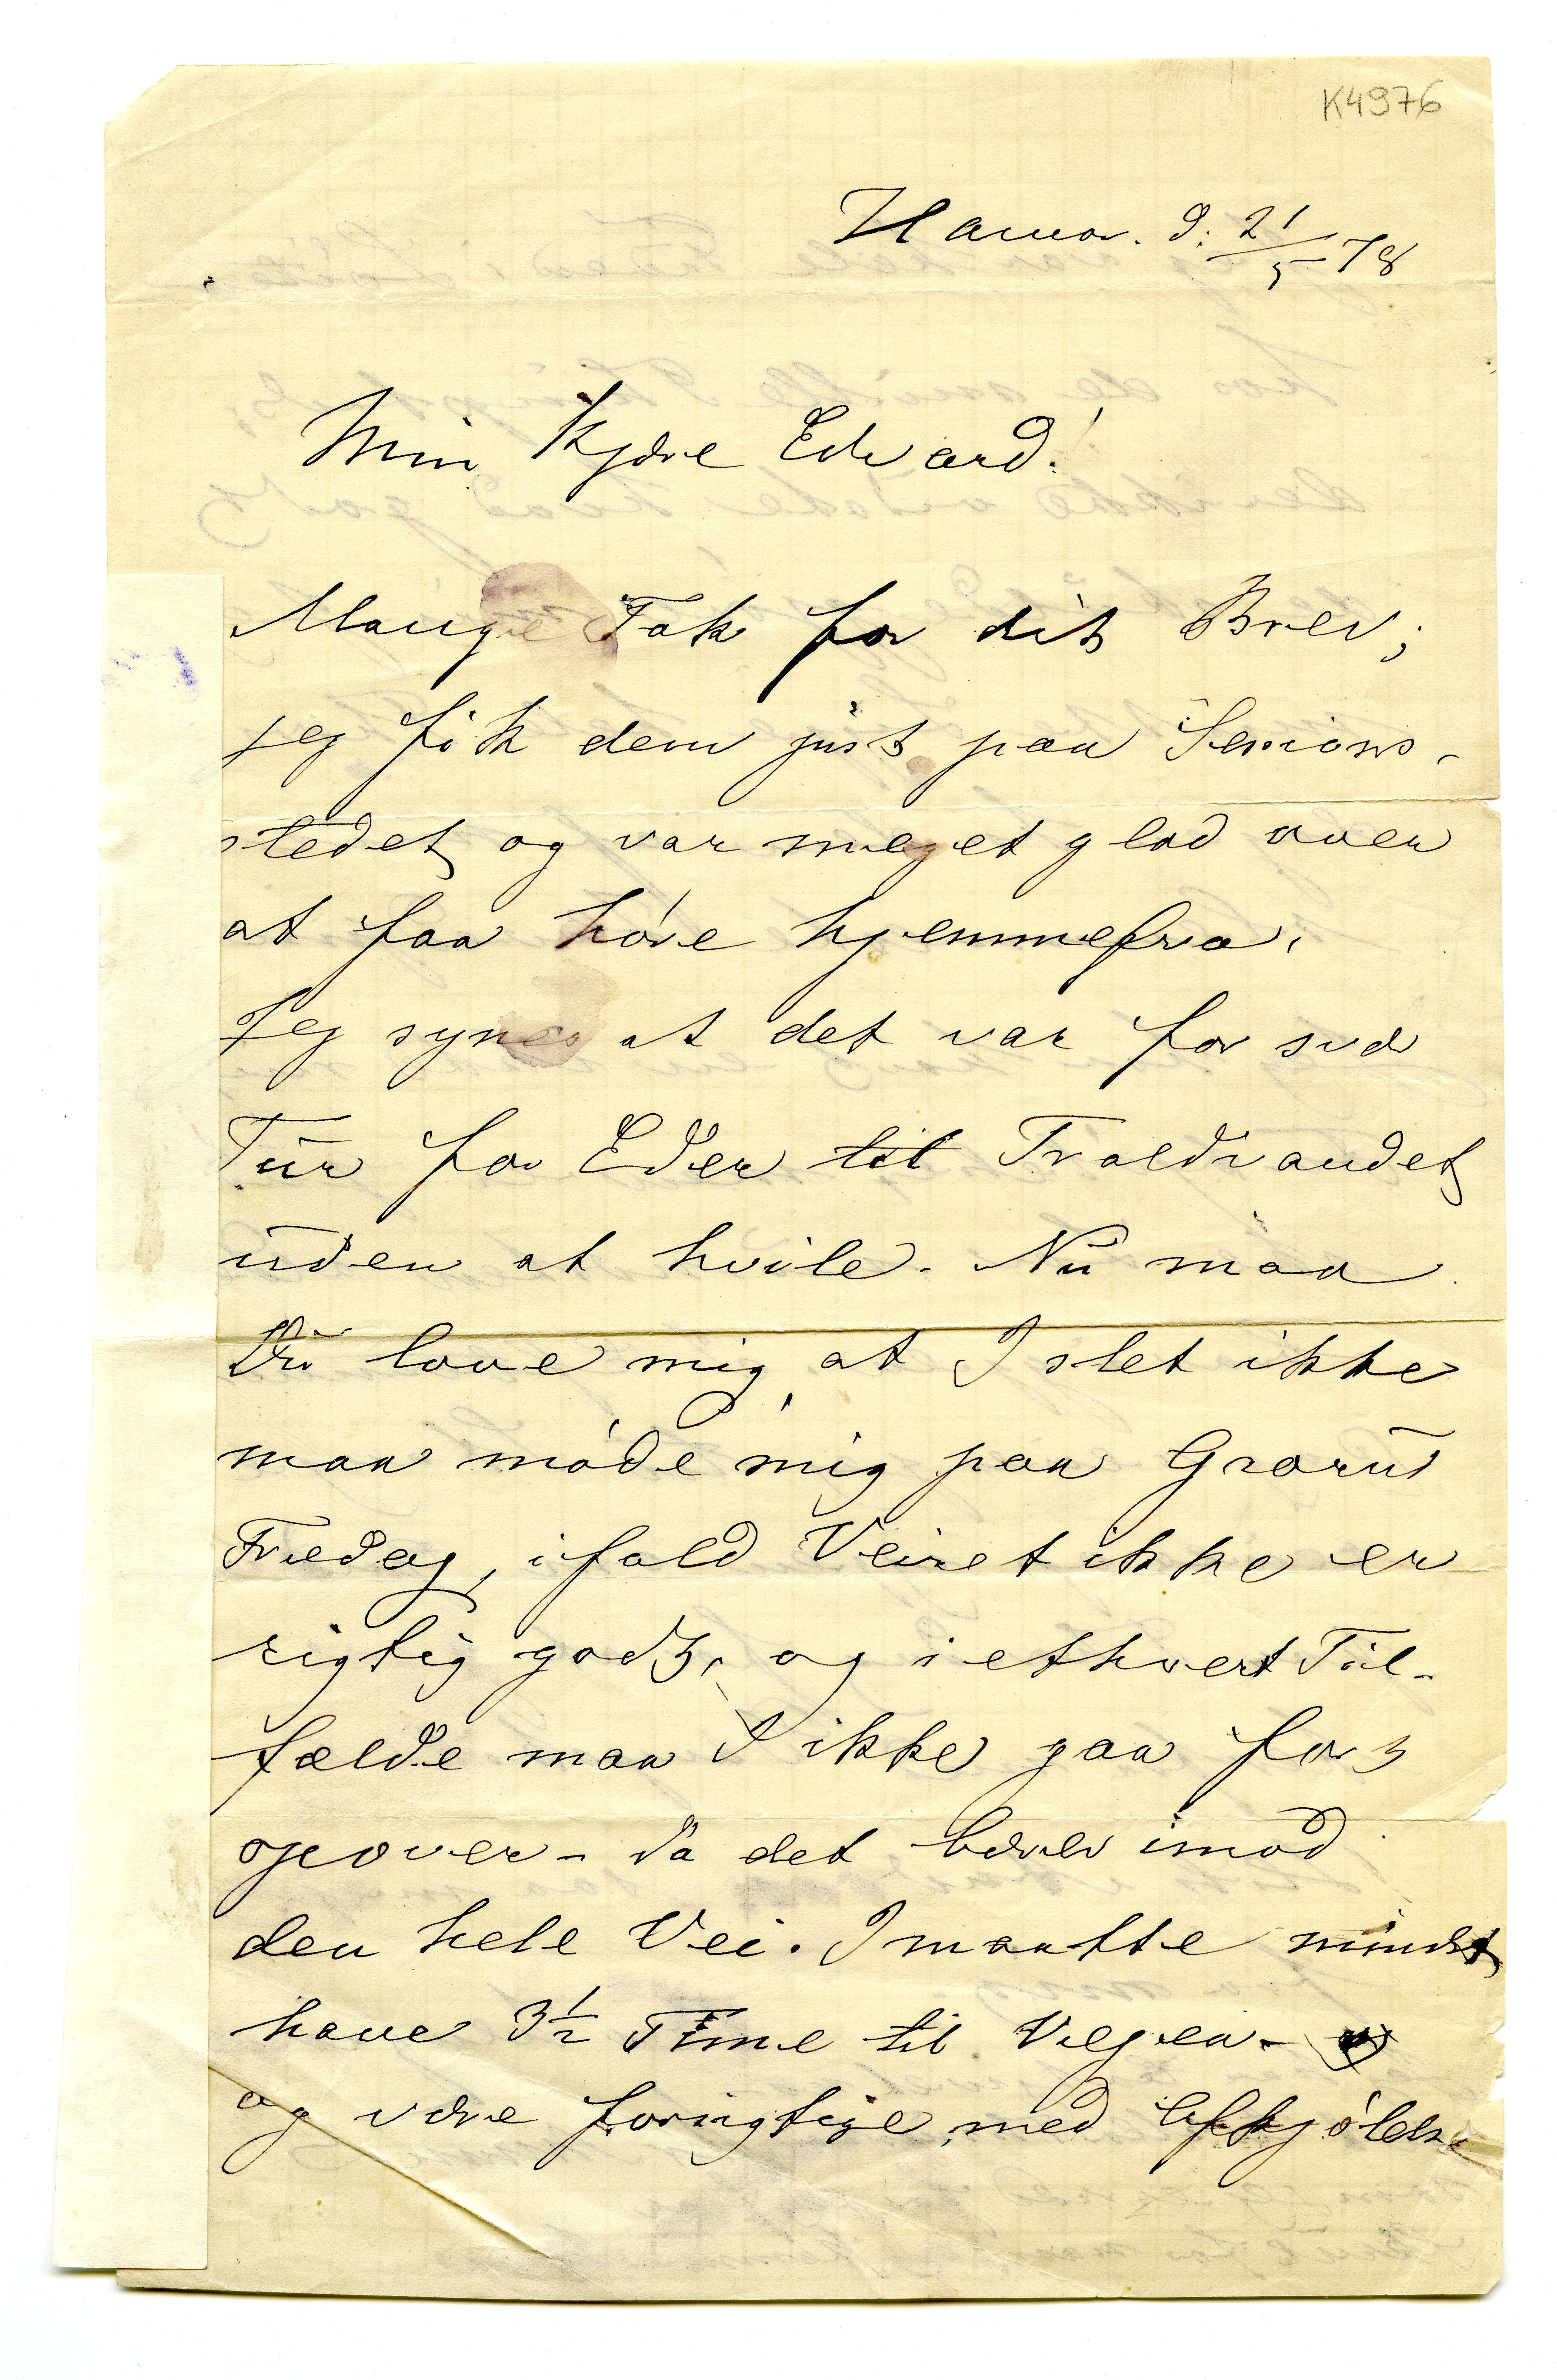 K4976
Hamar. d: 21/5 78
Min Kjære Edvard!
Mange Tak for dit Brev;
jeg fik dem just paa Sesions-
stedet og var meget glad over
at faa høre hjemmefra.
Jeg synes at det var for svær
Tur for Eder til Troldvandet
uden at hvile. Nu maa
Du love mig at I slet ikke
maa møde mig paa Grorud
Fredag, ifald Veiret ikke er
rigtig godt, og i ethvert Til-
fælde maa I ikke gaa fort
opover - da det bærer imod
den hele Vei. I maatte mindst
have 3½ Time til Vejen -
og være forsigtige med Afkjølelse